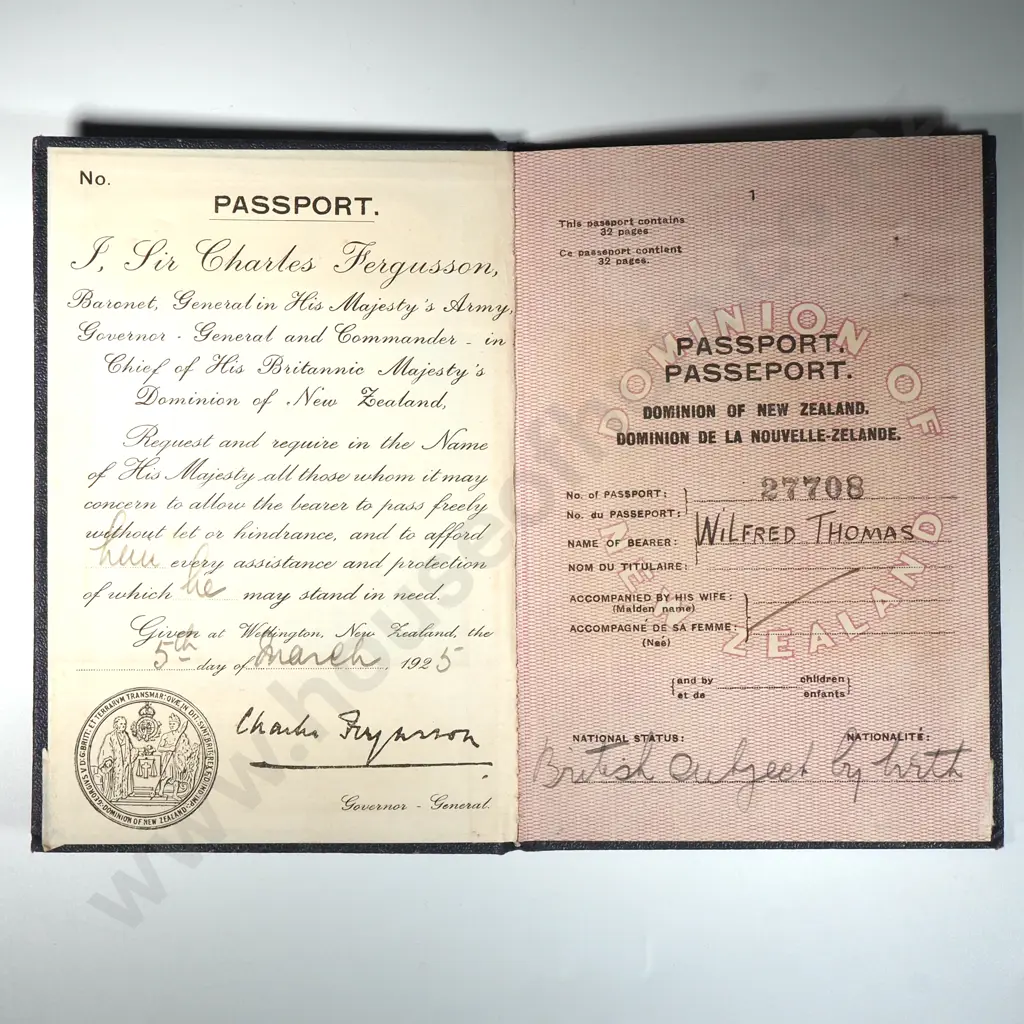 No.
PASSPORT.
I, Sir Charles Fergusson,
Baronet, General in His Majesty's Army,
Governor - General and Commander - in
Chief of His Britannic Majesty's
Dominion of New Zealand,
Request and require in the Name
of His Majesty all those whom it may
concern to allow the bearer to pass freely
without let or hindrance, and to afford
him every assistance and protection
of which he may stand in need.
Given at Wellington, New Zealand, the
5th day of March, 1925
Charles Fergusson
Governor - General.
DOMINION OF NEW ZEALAND
1
This passport contains
32 pages
Ce passeport contient
32 pages.
DOMINION OF NEW ZEALAND
PASSPORT.
PASSEPORT.
DOMINION OF NEW ZEALAND.
DOMINION DE LA NOUVELLE-ZELANDE.
No. of PASSPORT: 27708
No. du PASSEPORT:
NAME OF BEARER: WILFRED THOMAS
NOM DU TITULAIRE:
ACCOMPANIED BY HIS WIFE:
(Maiden name)
ACCOMPAGNÉ DE SA FEMME:
(Neé)
and by children
et de enfants
NATIONAL STATUS: NATIONALITÉ:
British subject by birth